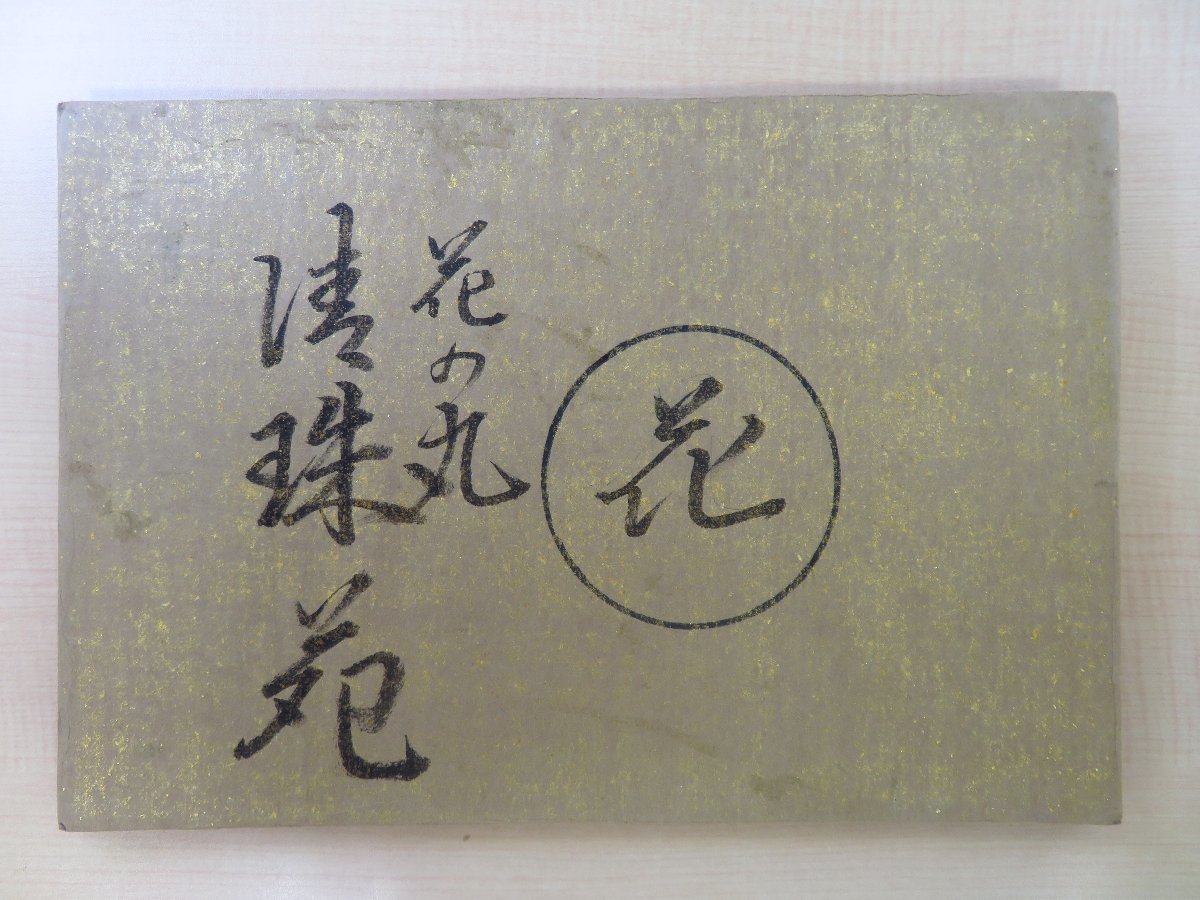 花
花の丸
清珠苑